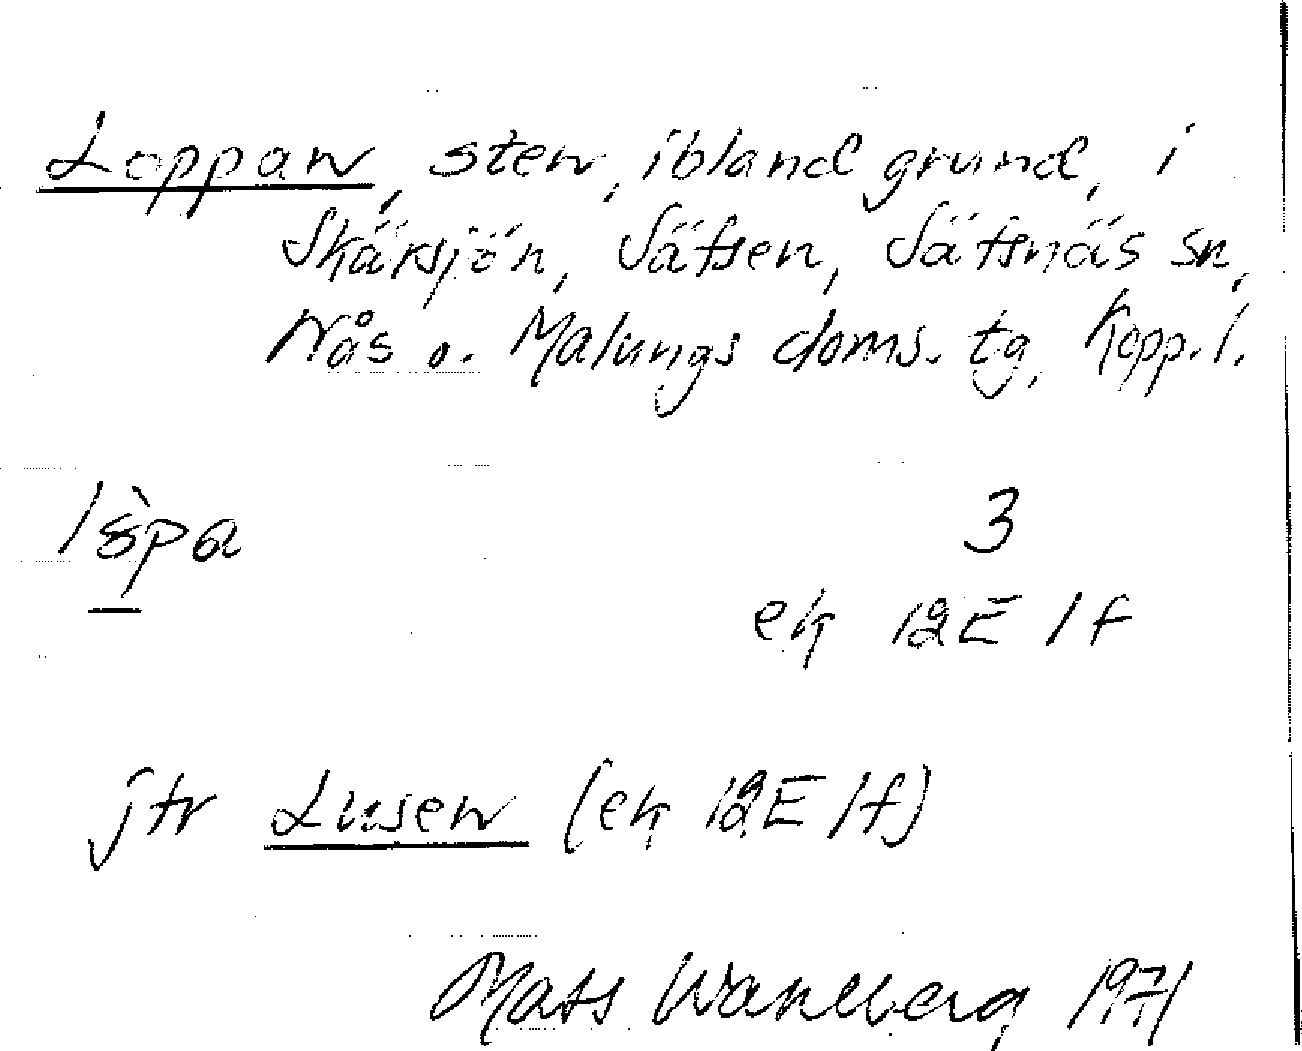 Loppan, sten, ibland grund, i
Skärsjön, Säfsen, Säfsnäs sn,
Nås o. Malungs doms. tg, Kopp. l.
3
ek 12E 1f
jfr Lusen (ek 12E 1f)
Mats Wahlberg 1971